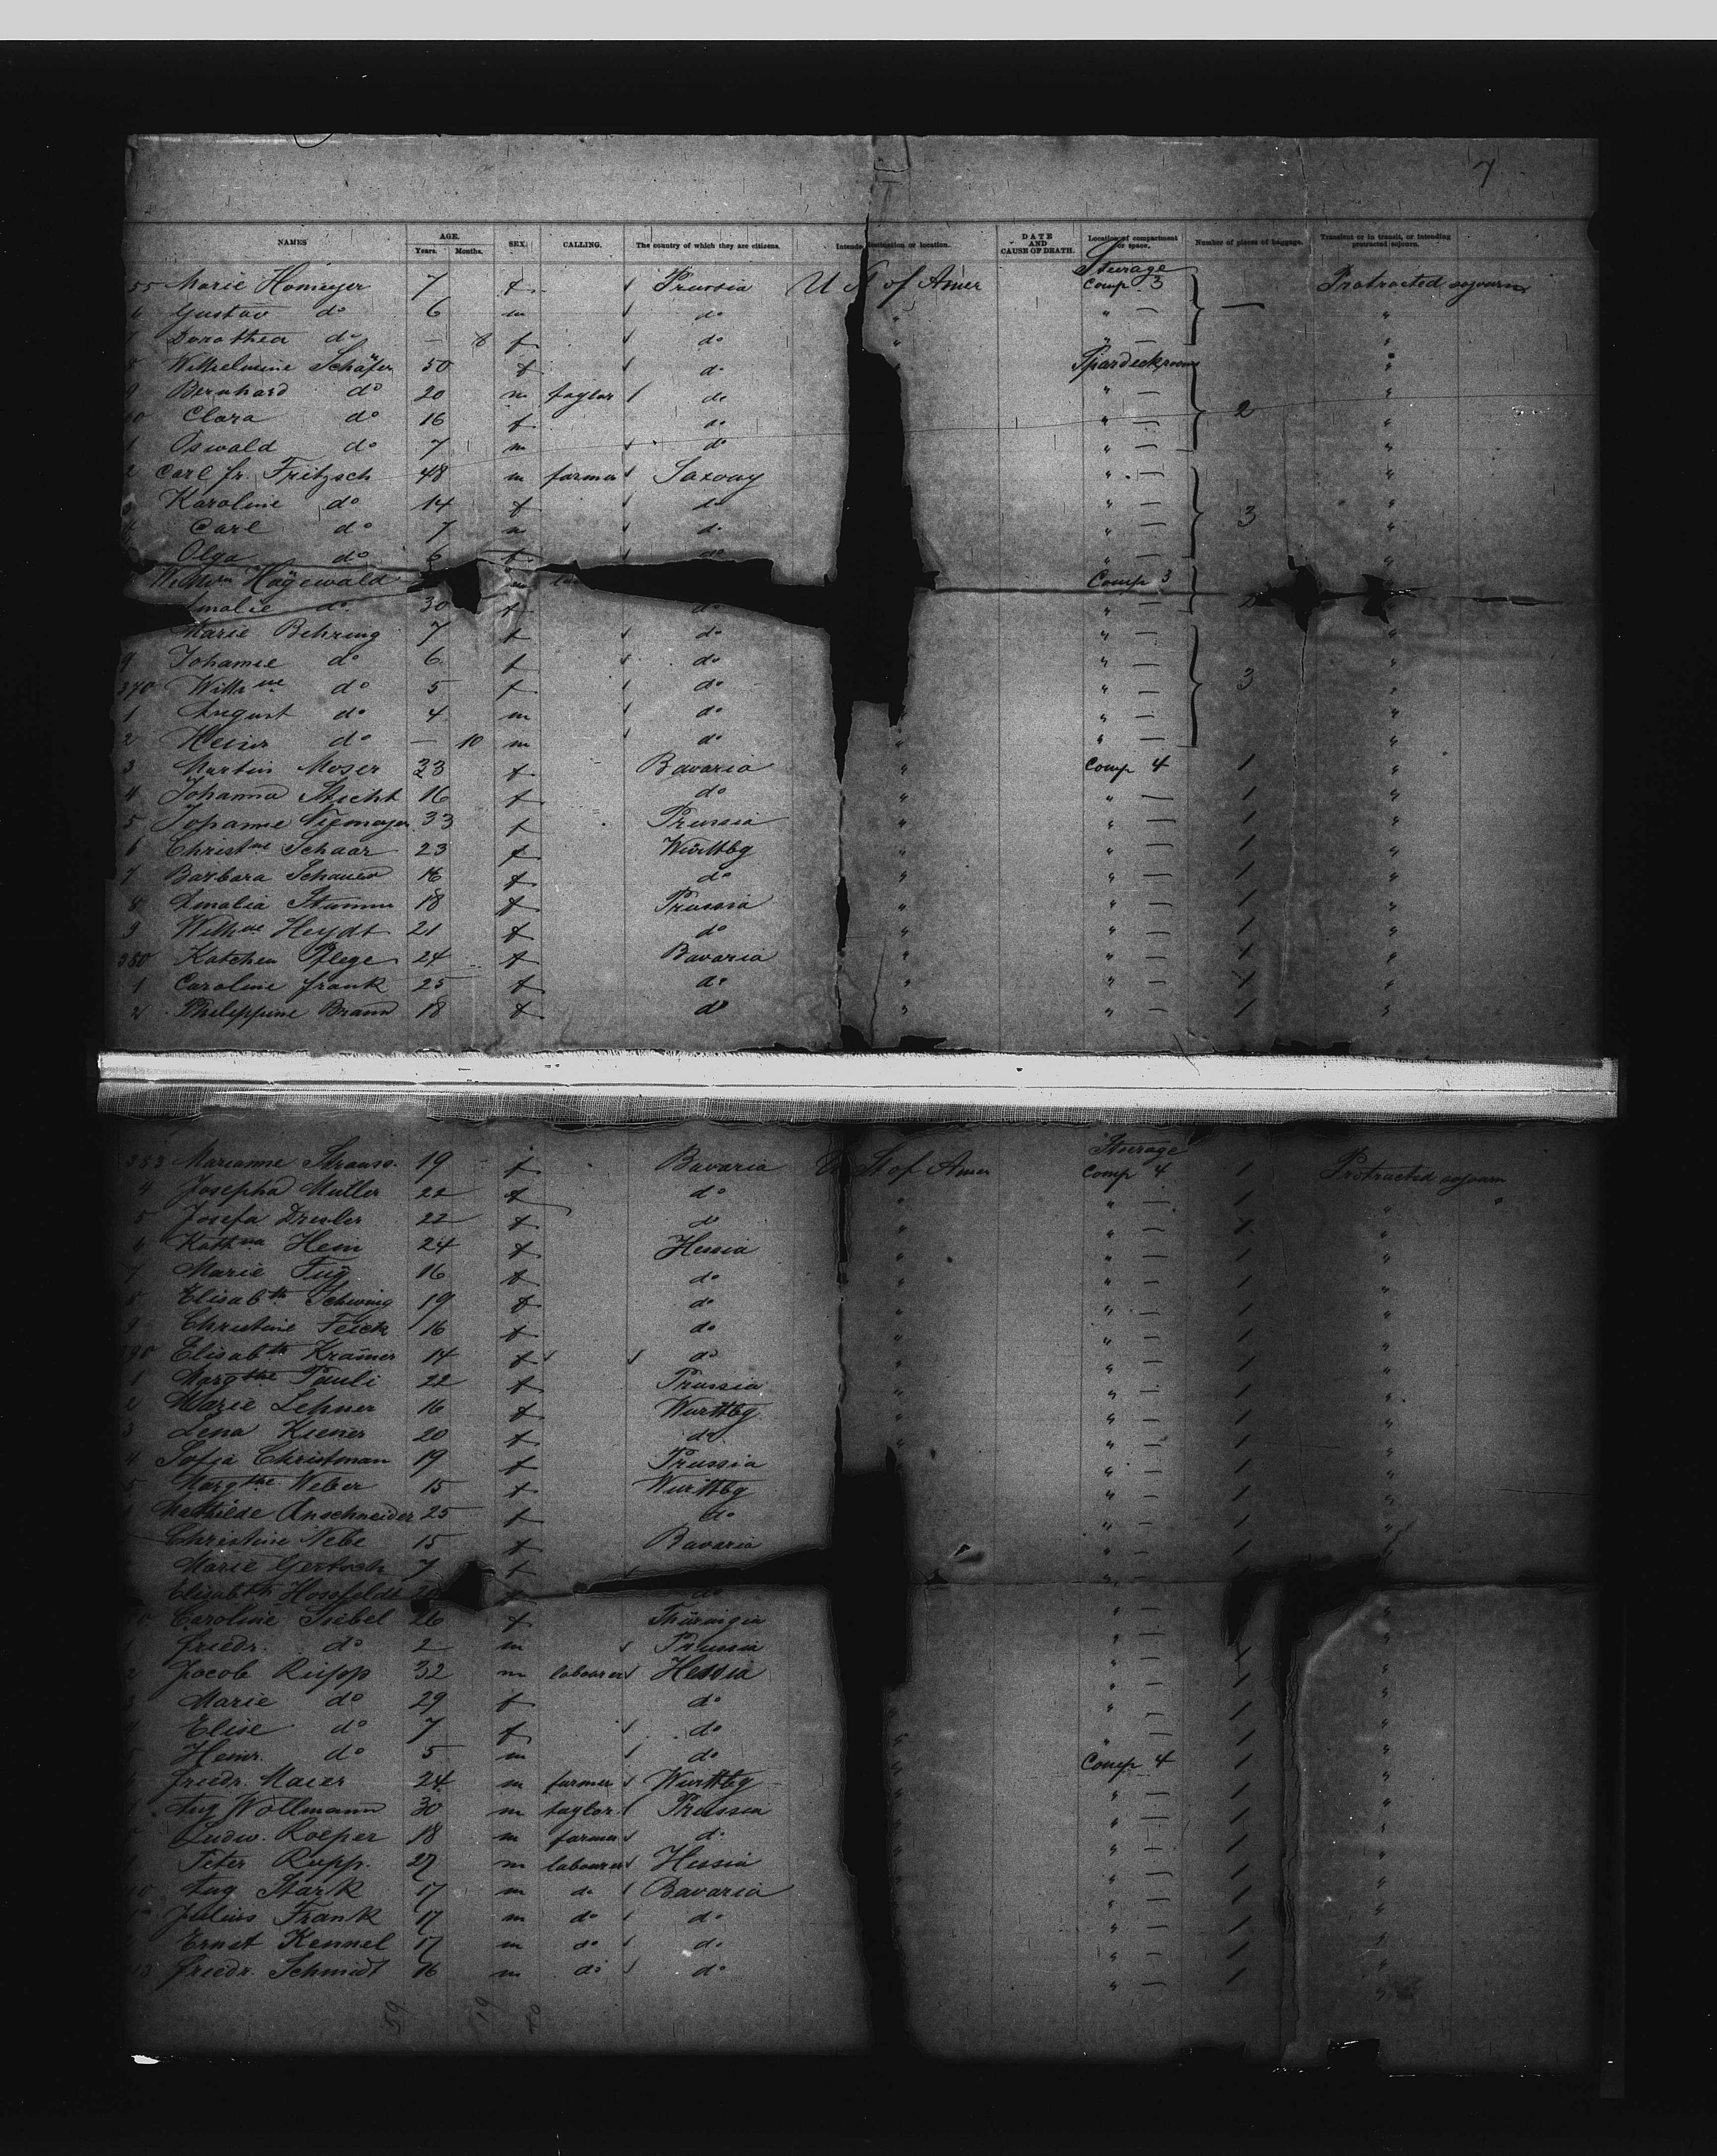 7
NAMES AGE. Years. Months. SEX. CALLING. The country of which they are citizens. Intende destination or location. DATE AND CAUSE OF DEATH. Location of compartment or space. Number of pieces of baggage. Transient or in transit, or intending protracted sojourn.
Steerage
55 Marie Homeyer 7 f Prussia U S of Amer Comp. 3 — Protracted sojourn
6 Gustav do 6 m do " " — "
Dorothea do — 8 f do " " — "
8 Wilhelmine Schäfer 50 f do Spardeckroom "
9 Bernhard do 20 m taylor do " — "
60 Clara do 16 f do " — 2 "
1 Oswald do 7 m do " — "
2 Carl fr. Fritzsch 48 m farmer Saxony " — "
Karoline do 14 f do " — "
Carl do 7 m do " — 3 "
Olga do 6 f do " — "
Hagewald m Comp 3
Amalie do 30 f do " — 2
Marie Behring 7 f do " — "
9 Johanne do 6 f do " — "
370 Wilhne do 5 f do " — 3 "
1 August do 4 m do " " — "
2 Heinr do — 10 m do " " — "
3 Martin Moser 33 f Bavaria " Comp 4 1 "
4 Johanna Sticht 16 f do " " — 1 "
5 Johanne Niemayer 33 f Prussia " " — 1 "
6 Christne Schaar 23 f Württbg " " — 1 "
7 Barbara Schauer 16 f do " " — 1 "
8 Amalia Stumm 18 f Prussia " " — 1 "
9 Wilhne Heydt 21 f do " " — 1 "
380 Katchen Pflege 24 f Bavaria " " — 1 "
1 Caroline Frank 25 f do " " — 1 "
2 Philippine Braun 18 f do " " — 1 "
Steerage
383 Marianne Strauss 19 f Bavaria U St of Amer Comp 4 1 Protracted sojourn
4 Josepha Müller 22 f do " " — 1 " "
5 Josefa Dresler 22 f do " " — 1 "
6 Kathna Hein 24 f Hessia " " — 1 "
7 Marie Fuy 16 f do " " — 1 "
8 Elisabth Schwing 19 f do " " — 1 "
9 Christine Feick 16 f do " " — 1 "
390 Elisabth Kramer 14 f do " " — 1 "
1 Margthe Pauli 22 f Prussia " " — 1 "
2 Marie Lehner 16 f Württbg " " — 1 "
3 Lena Kiener 20 f do " " — 1 "
4 Sofia Christman 19 f Prussia " — 1 "
5 Margthe Weber 15 f Württbg " — 1 "
Mathilde Anschneider 25 f do " — 1 "
Christine Nebe 15 f Bavaria " — 1 "
Marie Gertsch 7 f " —
Elisabth Hossfeldt f do " — "
Caroline Siebel 26 f Thüringia " — "
1 Friedr. do 2 m Prussia " — 1 "
2 Jacob Rupp 32 m labourer Hessia " — 1 "
3 Marie do 29 f do " — 1 "
Elise do 7 f do " — 1 "
Heinr. do 5 m do Comp 4 1 "
Friedr. Maier 24 m farmer Württbg " — 1 "
Aug Wollmann 30 m taylor Prussia " — 1 "
Ludw. Roeper 18 m farmer do " — 1 "
Peter Rupp. 27 m labourer Hessia " — 1 "
Aug Stark 17 m do Bavaria " — 1 "
Julius Frank 17 m do do " — 1 "
Ernst Kennel 17 m do do " — 1 "
13 Friedr. Schmidt 16 m do do " — 1 "